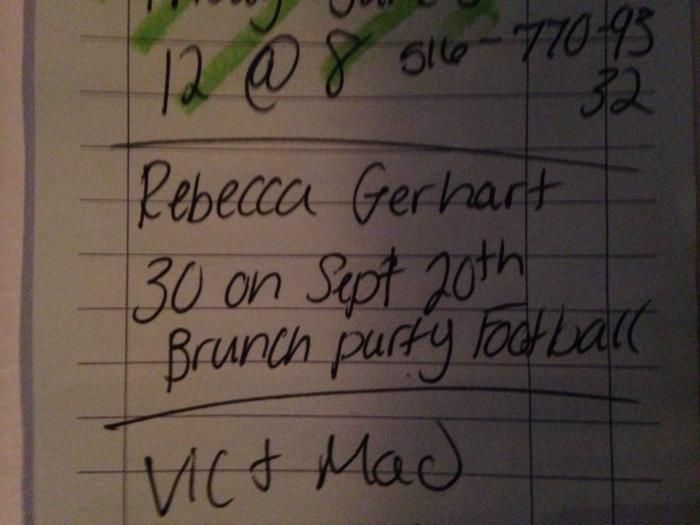 12 @ 8 516-770-93
32
Rebecca Gerhart
30 on Sept 20th
Brunch party Football
Vic + Mad